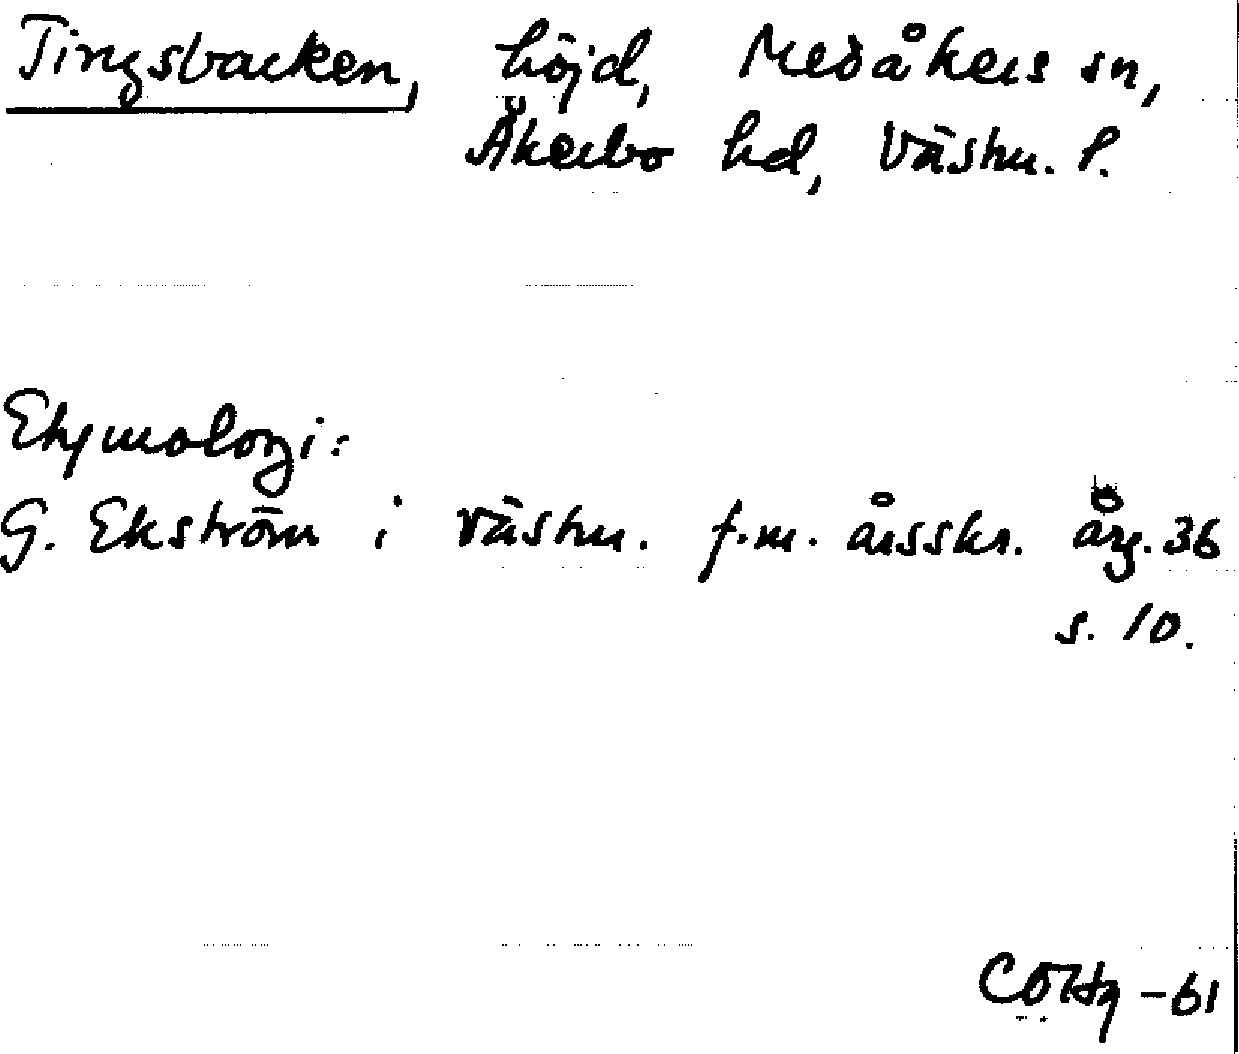 Tingsbacken, höjd, Medåkers sn,
Åkerbo hd, Västm. l.
Etymologi:
G. Ekström i Västm. f.m. årsskr. årg. 36
s. 10.
-61